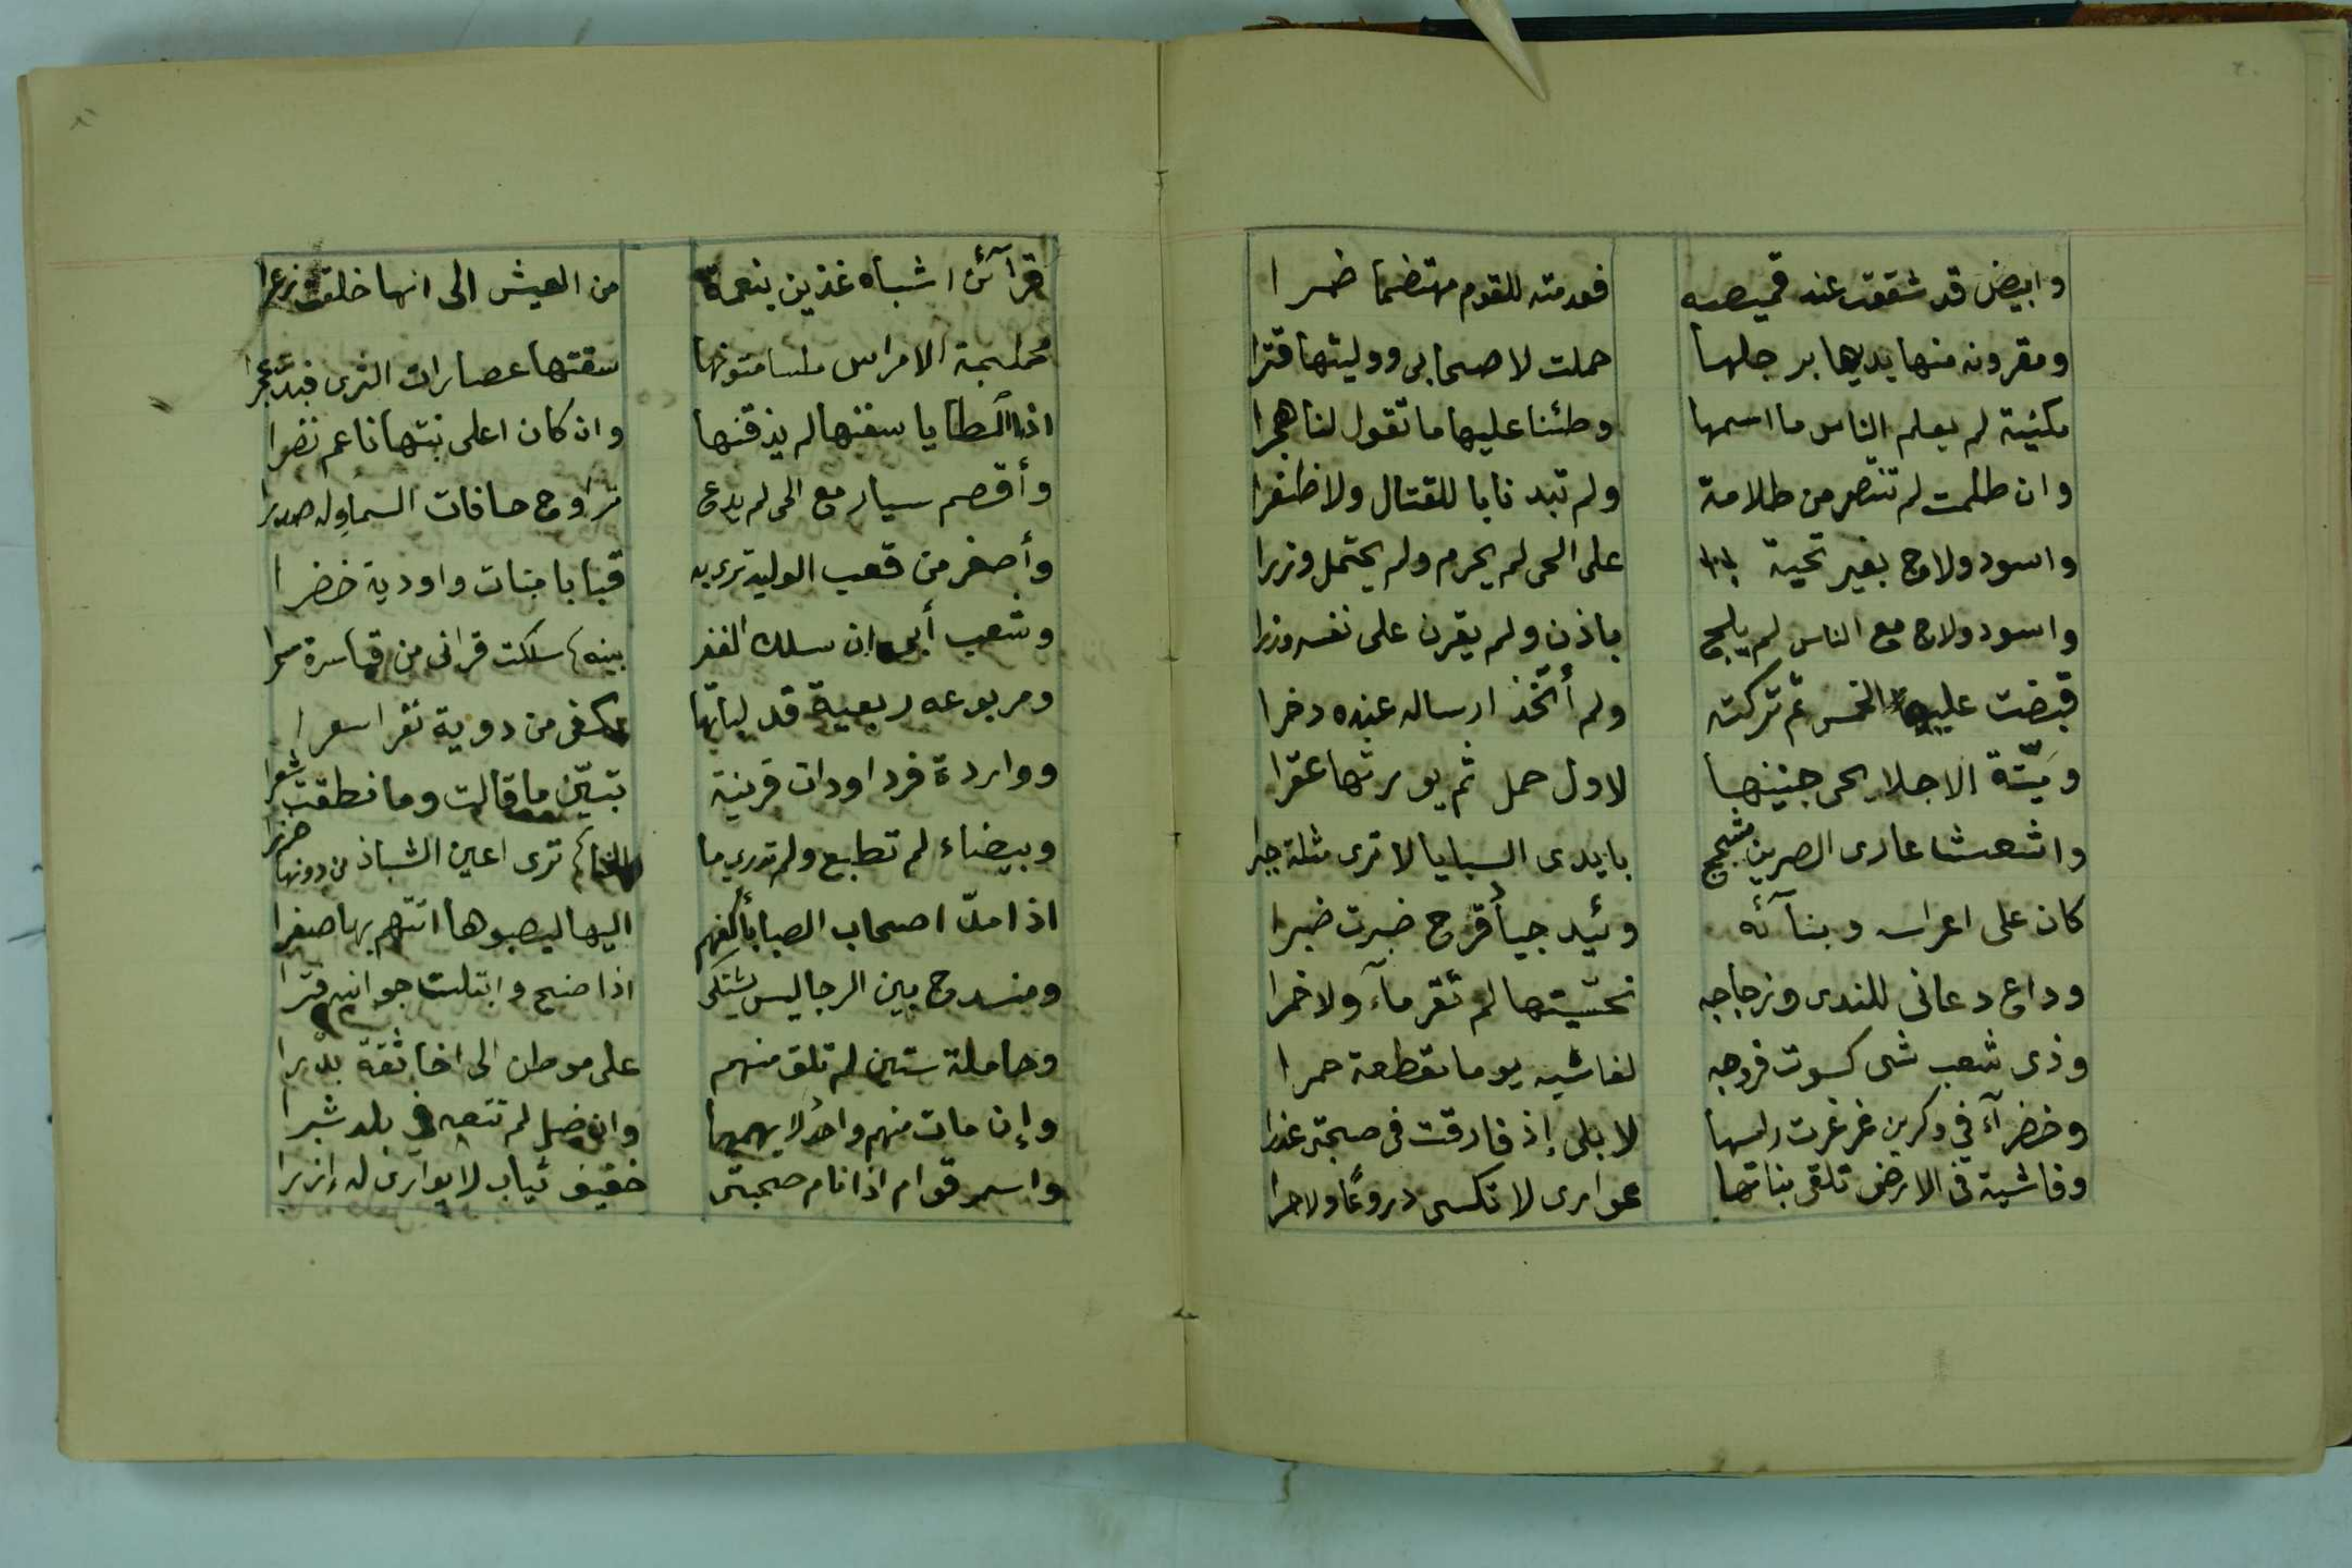 وابيض قد شققت عنه قميصه فقدمته للقوم مهتضما ضمرا
ومقرونه منها يديها برجلها حملت لاصحابى ووليتها قترا
مكنية لم يعلم الناس ما اسمها وطئنا عليها ما تقول لنا هجرا
وان ظلمت لم تنتصر من ظلامة ولم تبد نابا للقتال ولا ظفرا
واسود ولاج بغير تحية على الحى لم يجرم ولم يحتمل وزرا
واسود ولاج مع الناس لم يلج باذن ولم يقرن على نفسه وزرا
قبضت عليه الخمس ثم تركته ولم أتخذ ارساله عنده دخرا
وميّتة الاجلا يحى جنينها لاول حمل ثم يورثها عقرا
واشعشا عارى الضرين مشجج بايدى السبايا لا ترى مثله جبرا
كان على اعراسه وبنآئه وئيد جيأد قرح ضبرت ضبرا
وداع دعانى للندى وزجاجه تحسّيتها لم تقر مآء ولا خمرا
وذى شعب شى كسوت فروجه لغاشيه يوما مقطعة حمرا
وخضرآء في وكرين غرغرت راسها لا بلى إذ فارقت فى صحبتى عذرا
وفاشية فى الارض تلقى بناتها عوارى لا تكسى دروعًا ولا خمرا
قرآئن اشباه غذين بنعمة من العيش الى انها خلقت زعرا
محملجة الامراس ملسا متونها سقتها عصارات الثرى فبدت عجرا
اذا المطايا سفنها لم يذقنها وان كان اعلى نبتها ناعم نضرا
وأقصم سيار مع الحى لم يدع تراوح حافات السماوله صدرا
وأصغر من قعب الوليد ترى به قبابا مبنات واودية خضرا
وشعب أبى ان سلك الغفر بينه سلكت قرانى من قياسرة سمرا
ومربوعه ربعية قد لبأتها بكفى من دوية نفرا سعرا
وواردة فردا وذات قرينة تبيّن ما قالت وما نطقت شعرا
وبيضاء لم تطبع ولم تدرى ما الخنا ترى اعين الشبان من دونها خزرا
اذا مدّ اصحاب الصبا بأكفهم اليها ليصبوها اتتهم بها صفرا
ومنسدح بين الرجا ليس يشتكى اذا ضنح وابتلت جوانبه فترا
وحاملة ستين لم تلق منهم على موطن الى اخا ثقة بدرا
وإن مات منهم واحد لا يهمها وان ضل لم تتبعه في بلد شبرا
واسمر قوام اذا نام صحبتى خفيف ثياب لا يوارى له إزرا